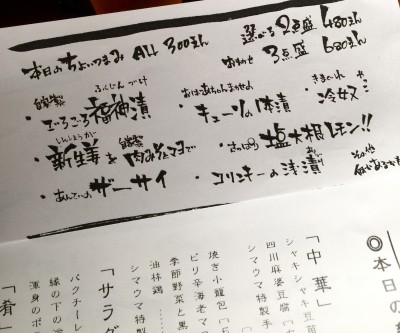 本日のちょいつまみ ALL 300えん
選べる2点盛 480えん
おまかせ 3点盛 680えん
自家製
ふくじんづけ
・ごろごろ福神漬
おばあちゃん
・キューリの1本漬
きまぐれ
・冷奴
しんしょうが
・新生姜を自家製肉みそマヨで
さっぱり
・塩大根レモン!!
・あんていの ザーサイ
・コリンキーの浅漬
その他
◎本日の
「中華」
シャキシャキ豆苗
四川麻婆豆腐
シマウマ特製
焼き小籠包
ピリ辛海老マ
季節野菜と黒
油林鶏
シマウマ特製
「サラダ
パクチーレ
縁の下の
渾身のポ
「肴」